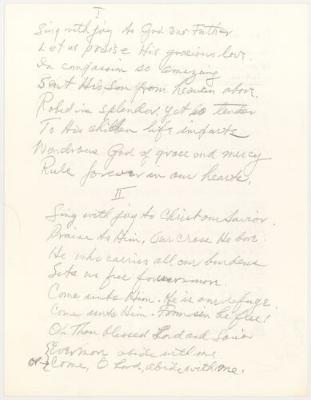 I
Sing with joy to God our Father
Let us praise His gracious love.
In compassion so amazing
Sent His Son from heaven above.
Robed in splendor, yet so tender
To His children life imparts
Wondrous God of grace and mercy
Rule forever in our hearts.
II
Sing with joy to Christ our Savior.
Praise to Him, Our Cross He bore.
He who carries all our burdens
Sets us free forevermore.
Come unto Him. He is our refuge.
Come unto Him. From sin be free!
Oh Thou blessed Lord and Savior
{Evermore abide with me
or {Come, O Lord, abide with me.